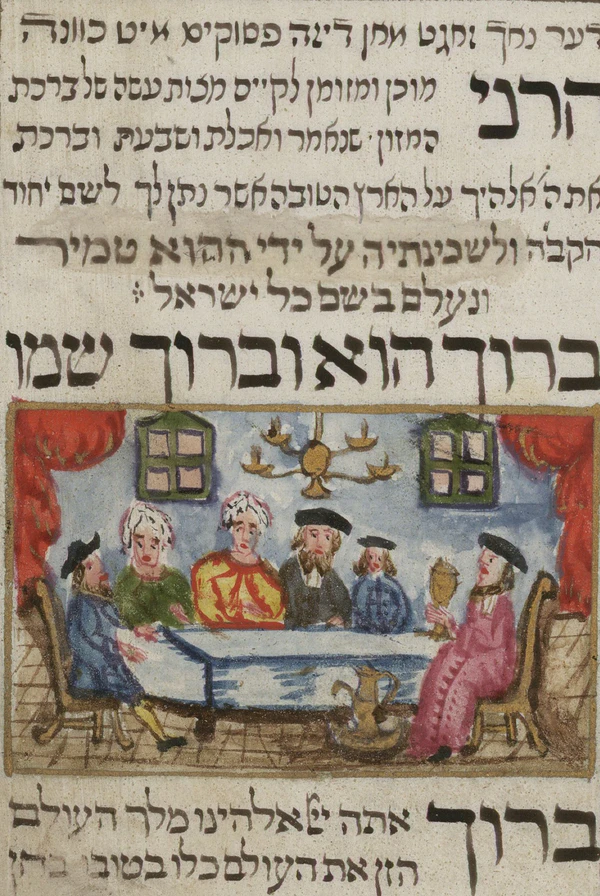 דער נאך זאגט מאן דיזה פסוקים מיט כוונה
הרני מוכן ומזומן לקיים מצות עשה של ברכת
המזון שנאמר ואכלת ושבעת וברכת
את ה' אלהיך על הארץ הטובה אשר נתן לך לשם יחוד
הקבה ולשכינתיה על ידי ההוא טמיר
ונעלם בשם כל ישראל
ברוך הוא וברוך שמו
ברוך אתה יי אלהינו מלך העולם
הזן את העולם כלו בטובו בחן